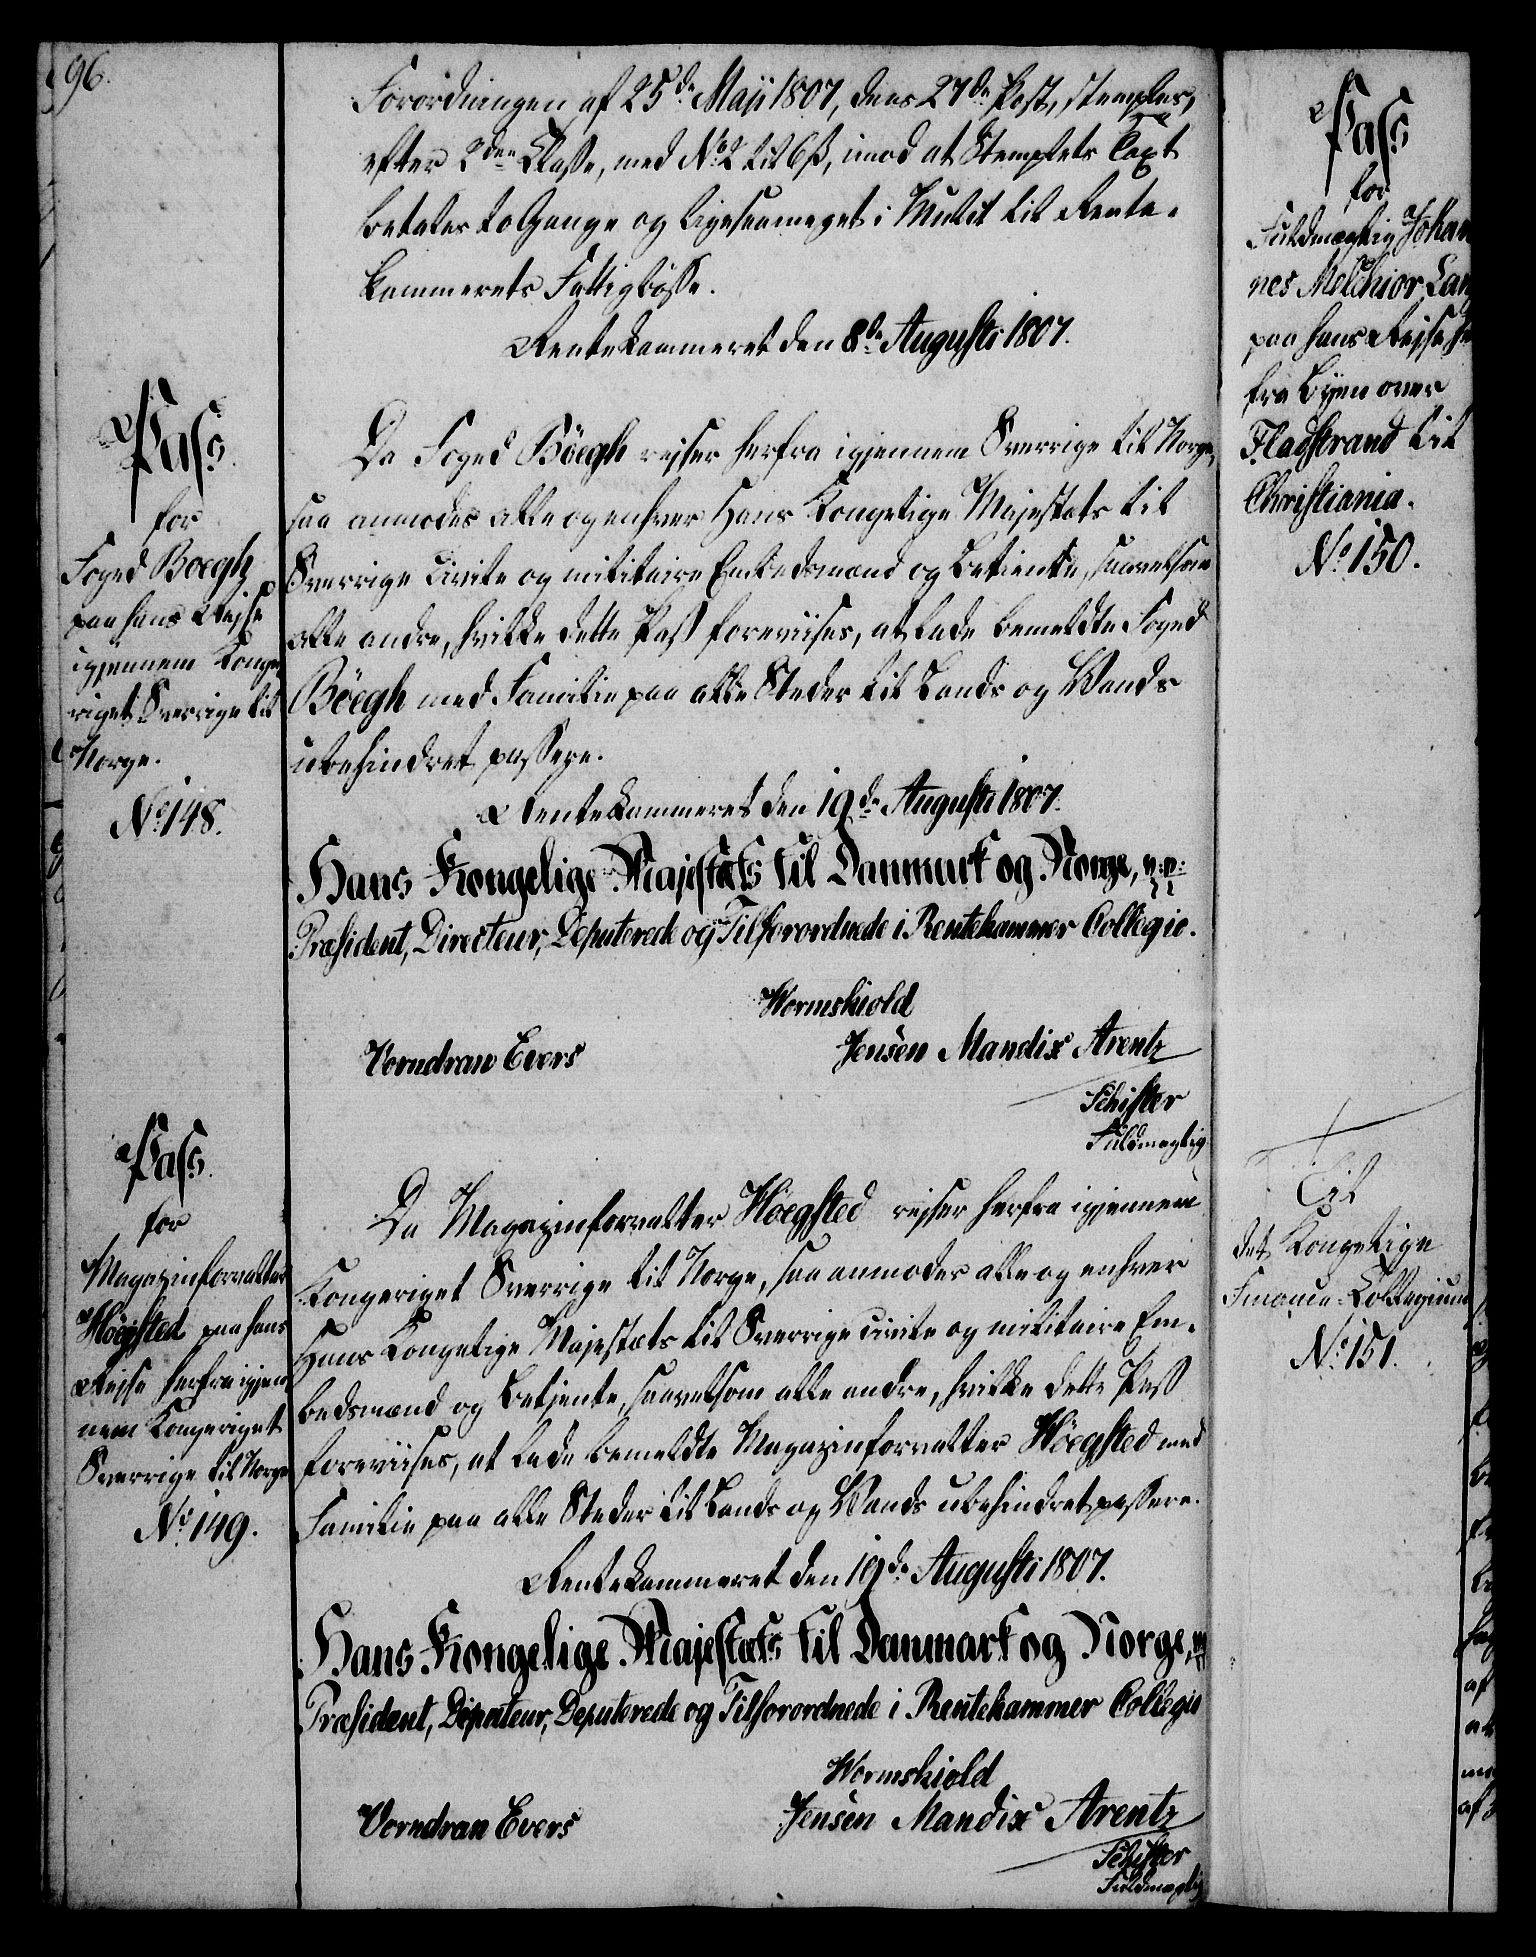 96.
Forordningen af 25de Maji 1807, dens 27de Post, stemples,
efter 2den Classe, med No 2 til 6ß, imod at Stemplets Taxt
betales to Gange og ligesaameget i Mulct til Rente-
kammerets Fattigbösse.
Rentekammeret den 8de Augusti 1807.
Pass
for
Foged Boegh
paa hans Rejse
igjennem Konge
riget Sverrige til
Norge.
No 148.
Da Foged Böegh rejser herfra igjennem Sverrige til Norge,
saa anmodes alle og enhver Hans Kongelige Majestæts til
Sverrige civile og militaire Embedsmænd og Betiente, saavelsom
alle andre, hvilke dette Pass foreviises, at lade bemeldte Foged
Böegh med Familie paa alle Steder til Lands og Vands
ubehindret passere.
Rentekammeret den 19de Augusti 1807.
Hans Kongelige Majestæts til Danmark og Norge, p: p:
Præsident, Directeur, Deputerede og Tilforordnede i Rentekammer Collegio.
Wormskiold
Vorndran Evers
Jensen Mandix Arentz
Schifter
Fuldmægtig
Pass
for
Magazinforvalter
Höegsted paa hans
Rejse herfra igjen
nem Kongeriget
Sverrige til Norge
No 149.
Da Magazinforvalter Höegsted rejser herfra igjennem
Kongeriget Sverrige til Norge, saa anmodes alle og enhver
Hans Kongelige Majestæts til Sverrige civile og militaire Em-
bedsmænd og Betjente, saavelsom alle andre, hvilke dette Pass
foreviises, at lade bemeldte Magazinforvalter Höegsted med
Familie paa alle Steder til Lands og Vands ubehindret passere.
Rentekammeret den 19de Augusti 1807.
Hans Kongelige Majestæts til Danmark og Norge,
Præsident, Directeur, Deputerede og Tilforordnede i Rentekammer Collegio
Wormskiold
Vorndran Evers
Jensen Mandix Arentz
Schifter
Fuldmægtig
Pass
for
Fuldmægtig Johan
nes Melchior Lan
paa hans Rejse he
fra Byen over
Fladstrand til
Christiania.
No 150.
Til
det Kongelige
Finance-Collegium
No 151.